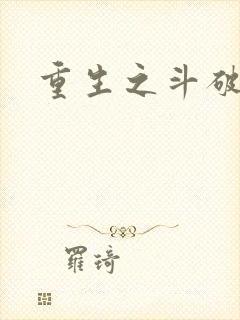 重生之斗破
羅琦